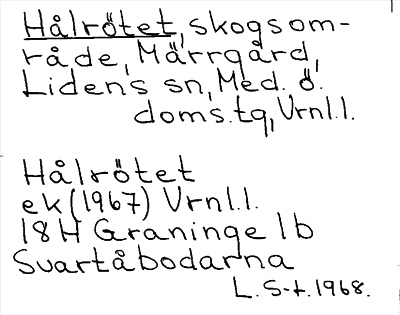 Hålrötet, skogsom-
råde, Märrgård,
Lidens sn, Med. ö.
doms.tg, Vrnl.l.
Hålrötet
ek (1967) Vrnl.l.
18H Graninge 1b
Svartåbodarna
L. S-t. 1968.